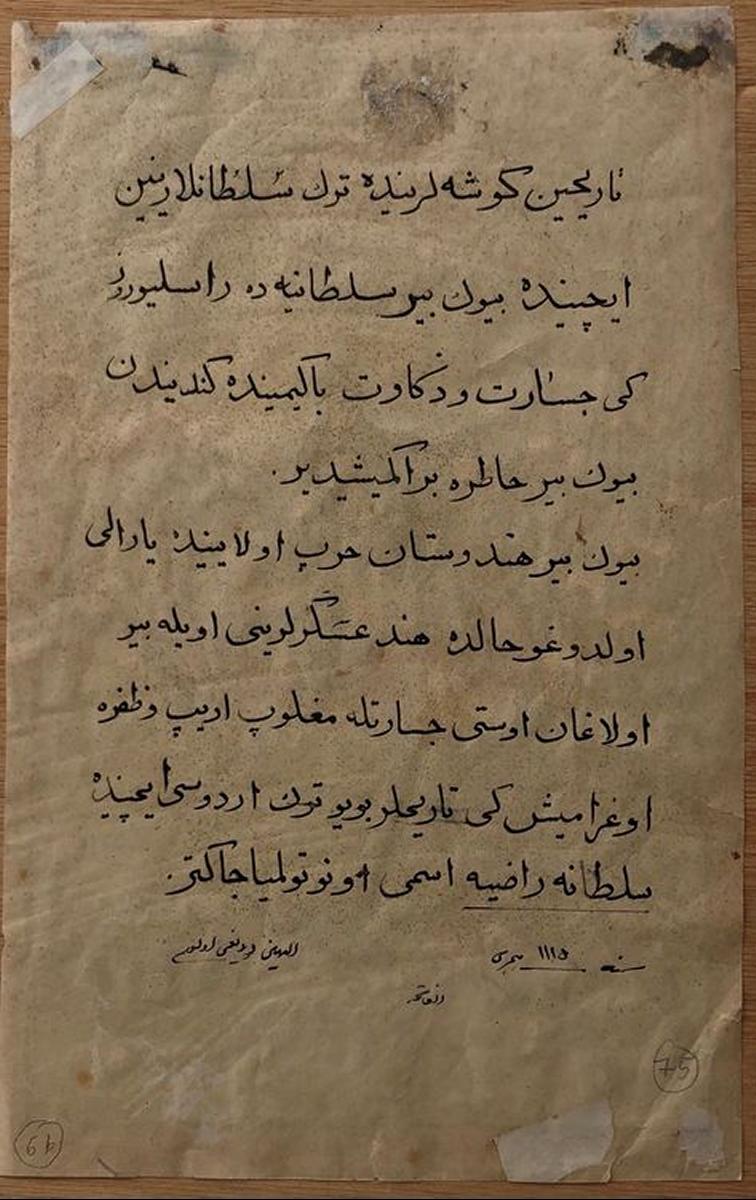 تاریحین کوشه لرینده ترك سلطانلارینین
ایچینده بیوك بیر سلطانیه ده راسلیوروز
کی جسارت و ذکاوت باکیمینده کندیندن
بیوك بیر حاطره براکمیشدیر.
بیوك بیر هندوستان حرب اولاییندۀ یارالی
اولدوغو حالده هند عسکرلرینی اویله بیر
اولاغان اوستی جسارتله مغلوپ ادیپ وظفره
اوغرامیش کی تاریحلر بویو تورك اردوسی ایچینده
سلطانه راضیه اسمی اونوتولمیاجاکتر.
سنه ١١١٥ هجری
الفاتحه
75